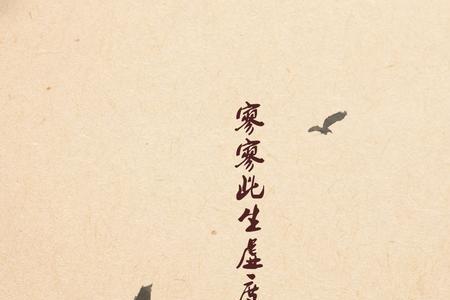 寥寥此生虚度